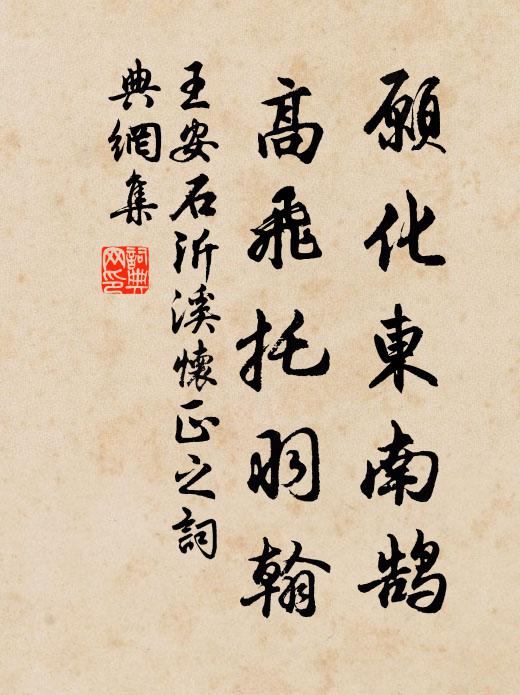 願化東南鹄
高飛托羽翰
王安石沂溪懷正之詞
典網集
詞典
网印